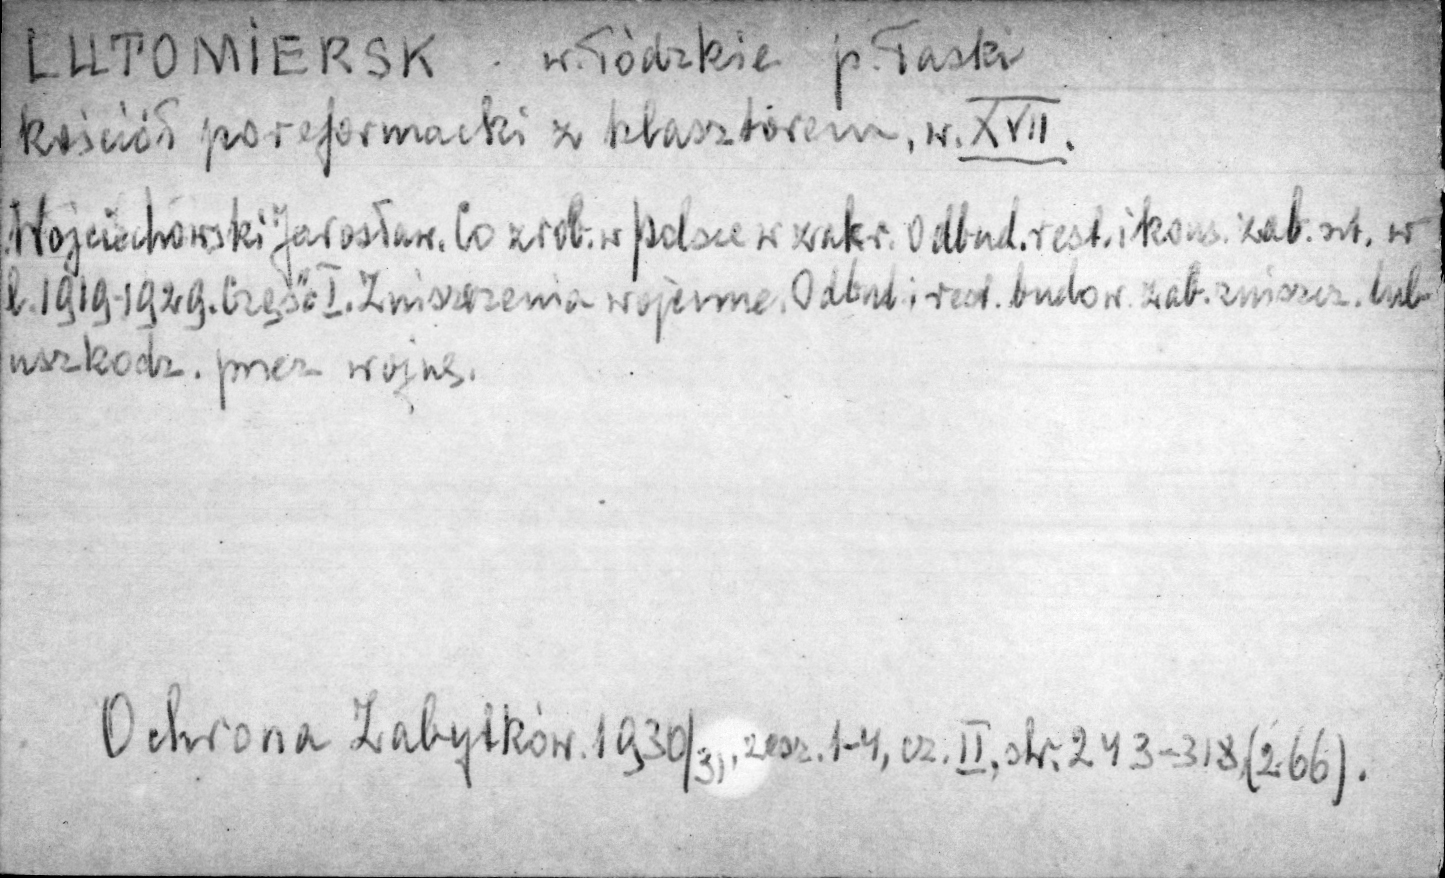 LUTOMIERSK w. łódzkie p. łaski
kościół poreformacki z klasztorem, w. XVII.
Wojciechowski Jarosław. Co zrob. w Polsce w zakr. Odbud. rest. i kons. zab. szt. w
l. 1919-1929. Część I. Zniszczenia wojenne. Odbud. i rest. budow. zab. zniszcz. lub
uszkodz. przez wojnę.
Ochrona Zabytków. 1930/31, zesz. 1-4, cz. II, str. 243-318, (266).